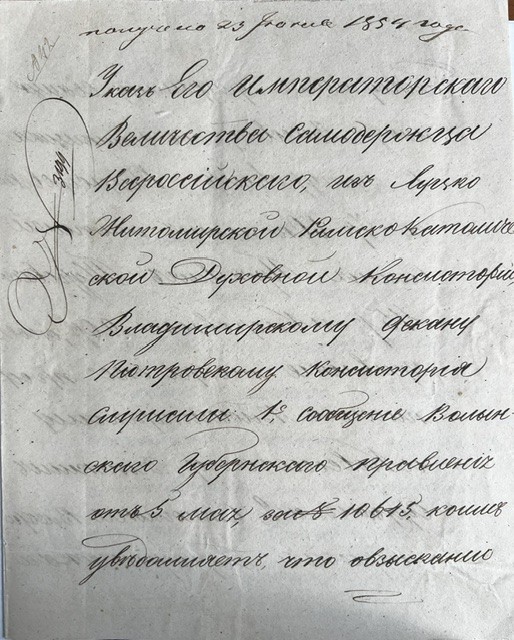 получено 23 Июня 1854 года
Указъ Его Императорскаго
Величества Самодержца
Всероссійскаго, изъ Луцко
Житомирской Римскокатоличе
ской Духовной Консисторіи,
Владимирскому Декану
Піотровскому Консисторія
слушали: 1е сообщеніе Волын-
скаго Губернскаго правленія
отъ 5 мая, за № 10615, коимъ
увѣдомляетъ, что овзысканіи